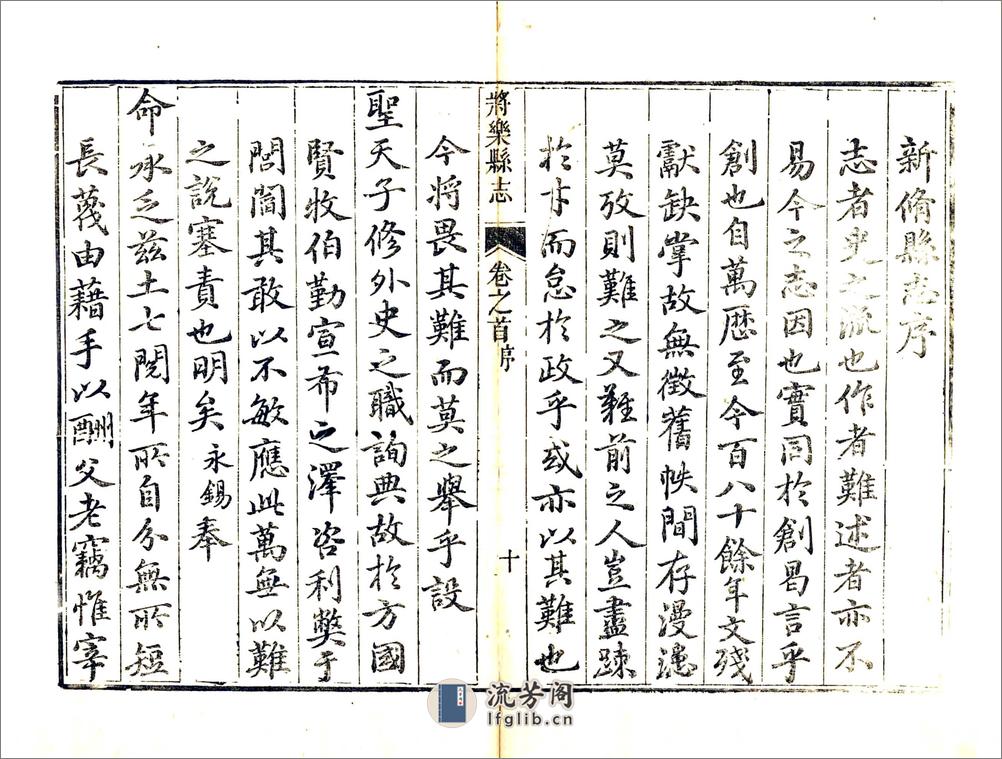 新脩縣志序
志者史之流也作者難述者亦不
易今之志因也實同於創曷言乎
創也自萬歷至今百八十餘年文殘
獻缺掌故無徵舊帙間存漫漶
莫攷則難之又難前之人豈盡踈
於才而怠於政乎或亦以其難也
將樂縣志
卷之首
序
十
今將畏其難而莫之舉乎設
聖天子修外史之職詢典故於方國
賢牧伯勤宣布之澤咨利弊于
閭閻其敢以不敏應此萬無以難
之說塞責也明矣永錫奉
命承乏兹土七閱年所自分無所短
長蔑由藉手以酬父老竊惟宰
流芳阁
lfglib.cn